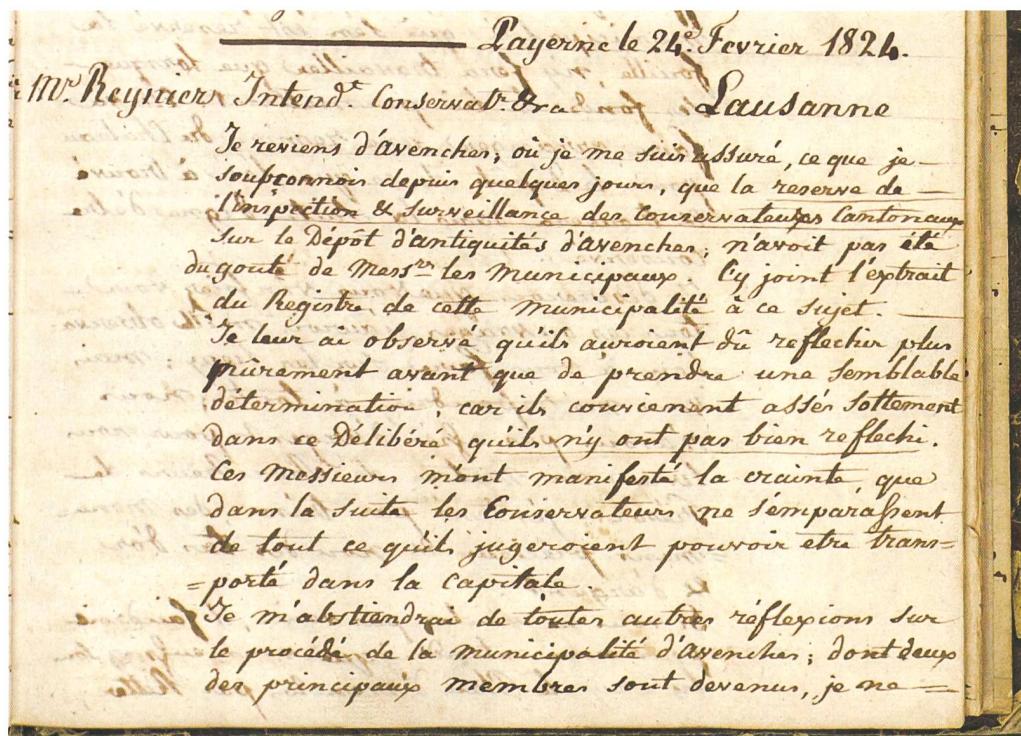 Payerne le 24e. Fevrier 1824.
Mr. Reynier Intendt. Conservatr. &ra Lausanne
Je reviens d'avenches, où je me suis assuré, ce que je
soupçonnois depuis quelques jours, que la reserve de
l'inspection & surveillance des Conservateurs Cantonaux
sur le Dépôt d'antiquités d'avenches, n'avoit pas été
du gouté de Messrs les Municipaux. Cy joint l'extrait
du Registre de cette municipalité à ce sujet.
Je leur ai observé qu'ils auroient dû reflechir plus
mûrement avant que de prendre une semblable
détermination, car ils convienent assés sottement
dans ce Délibéré qu'ils n'y ont pas bien reflechi.
Ces Messieurs m'ont manifesté la crainte que
dans la suite les Conservateurs ne s'emparassent
de tout ce qu'ils jugeroient pouvoir etre trans=
=porté dans la Capitale.
Je m'abstiendrai de toutes autres réflexions sur
le procédé de la municipalité d'avenches; dont deux
des principaux membres sont devenus, je ne =